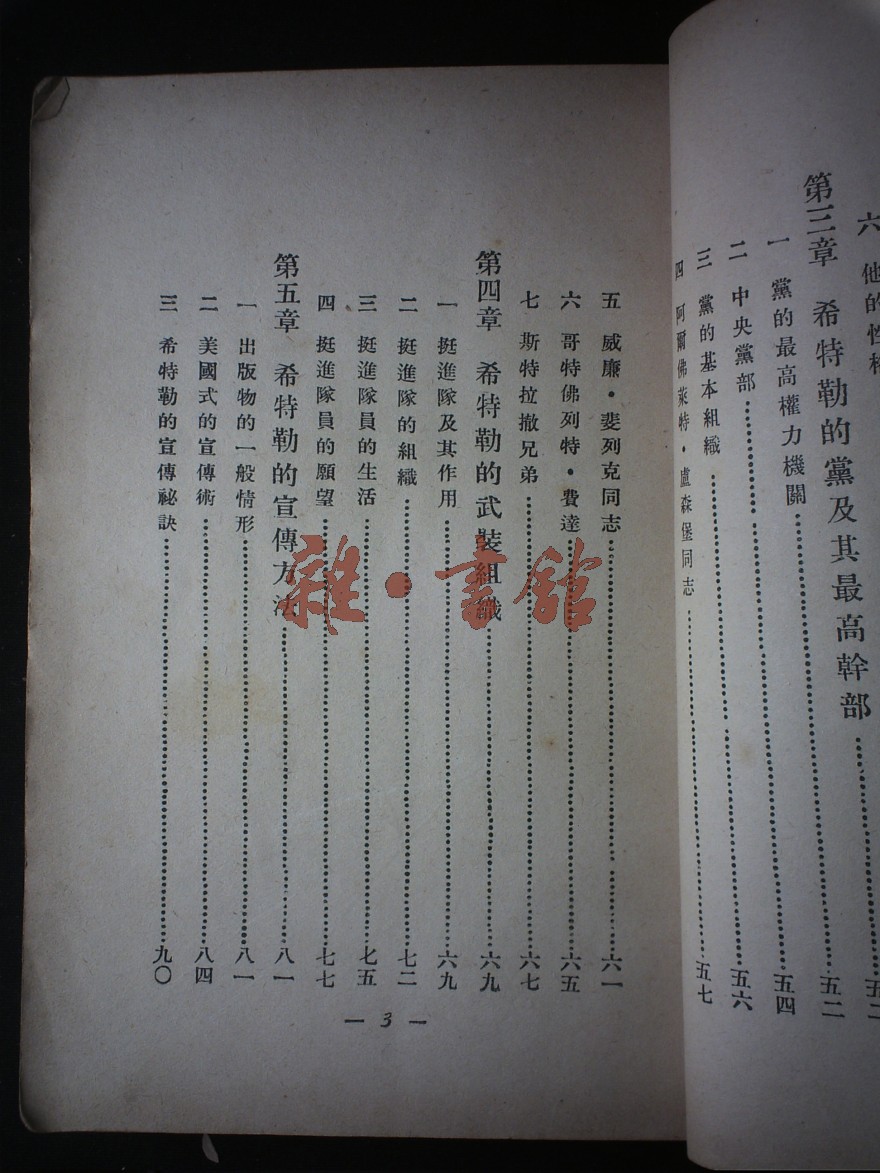 六 他的性格
第三章 希特勒的黨及其最高幹部……五二
一 黨的最高權力機關……五四
二 中央黨部……五六
三 黨的基本組織……五七
四 阿爾佛萊特・盧森堡同志
五 威廉・斐列克同志……六一
六 哥特佛列特・費達……六五
七 斯特拉撤兄弟……六七
第四章 希特勒的武裝組織……六九
一 挺進隊及其作用……六九
二 挺進隊的組織……七二
三 挺進隊員的生活……七五
四 挺進隊員的願望……七七
第五章 希特勒的宣傳方法……八一
一 出版物的一般情形……八一
二 美國式的宣傳術……八四
三 希特勒的宣傳祕訣……九〇
— 3 —
雜・書館